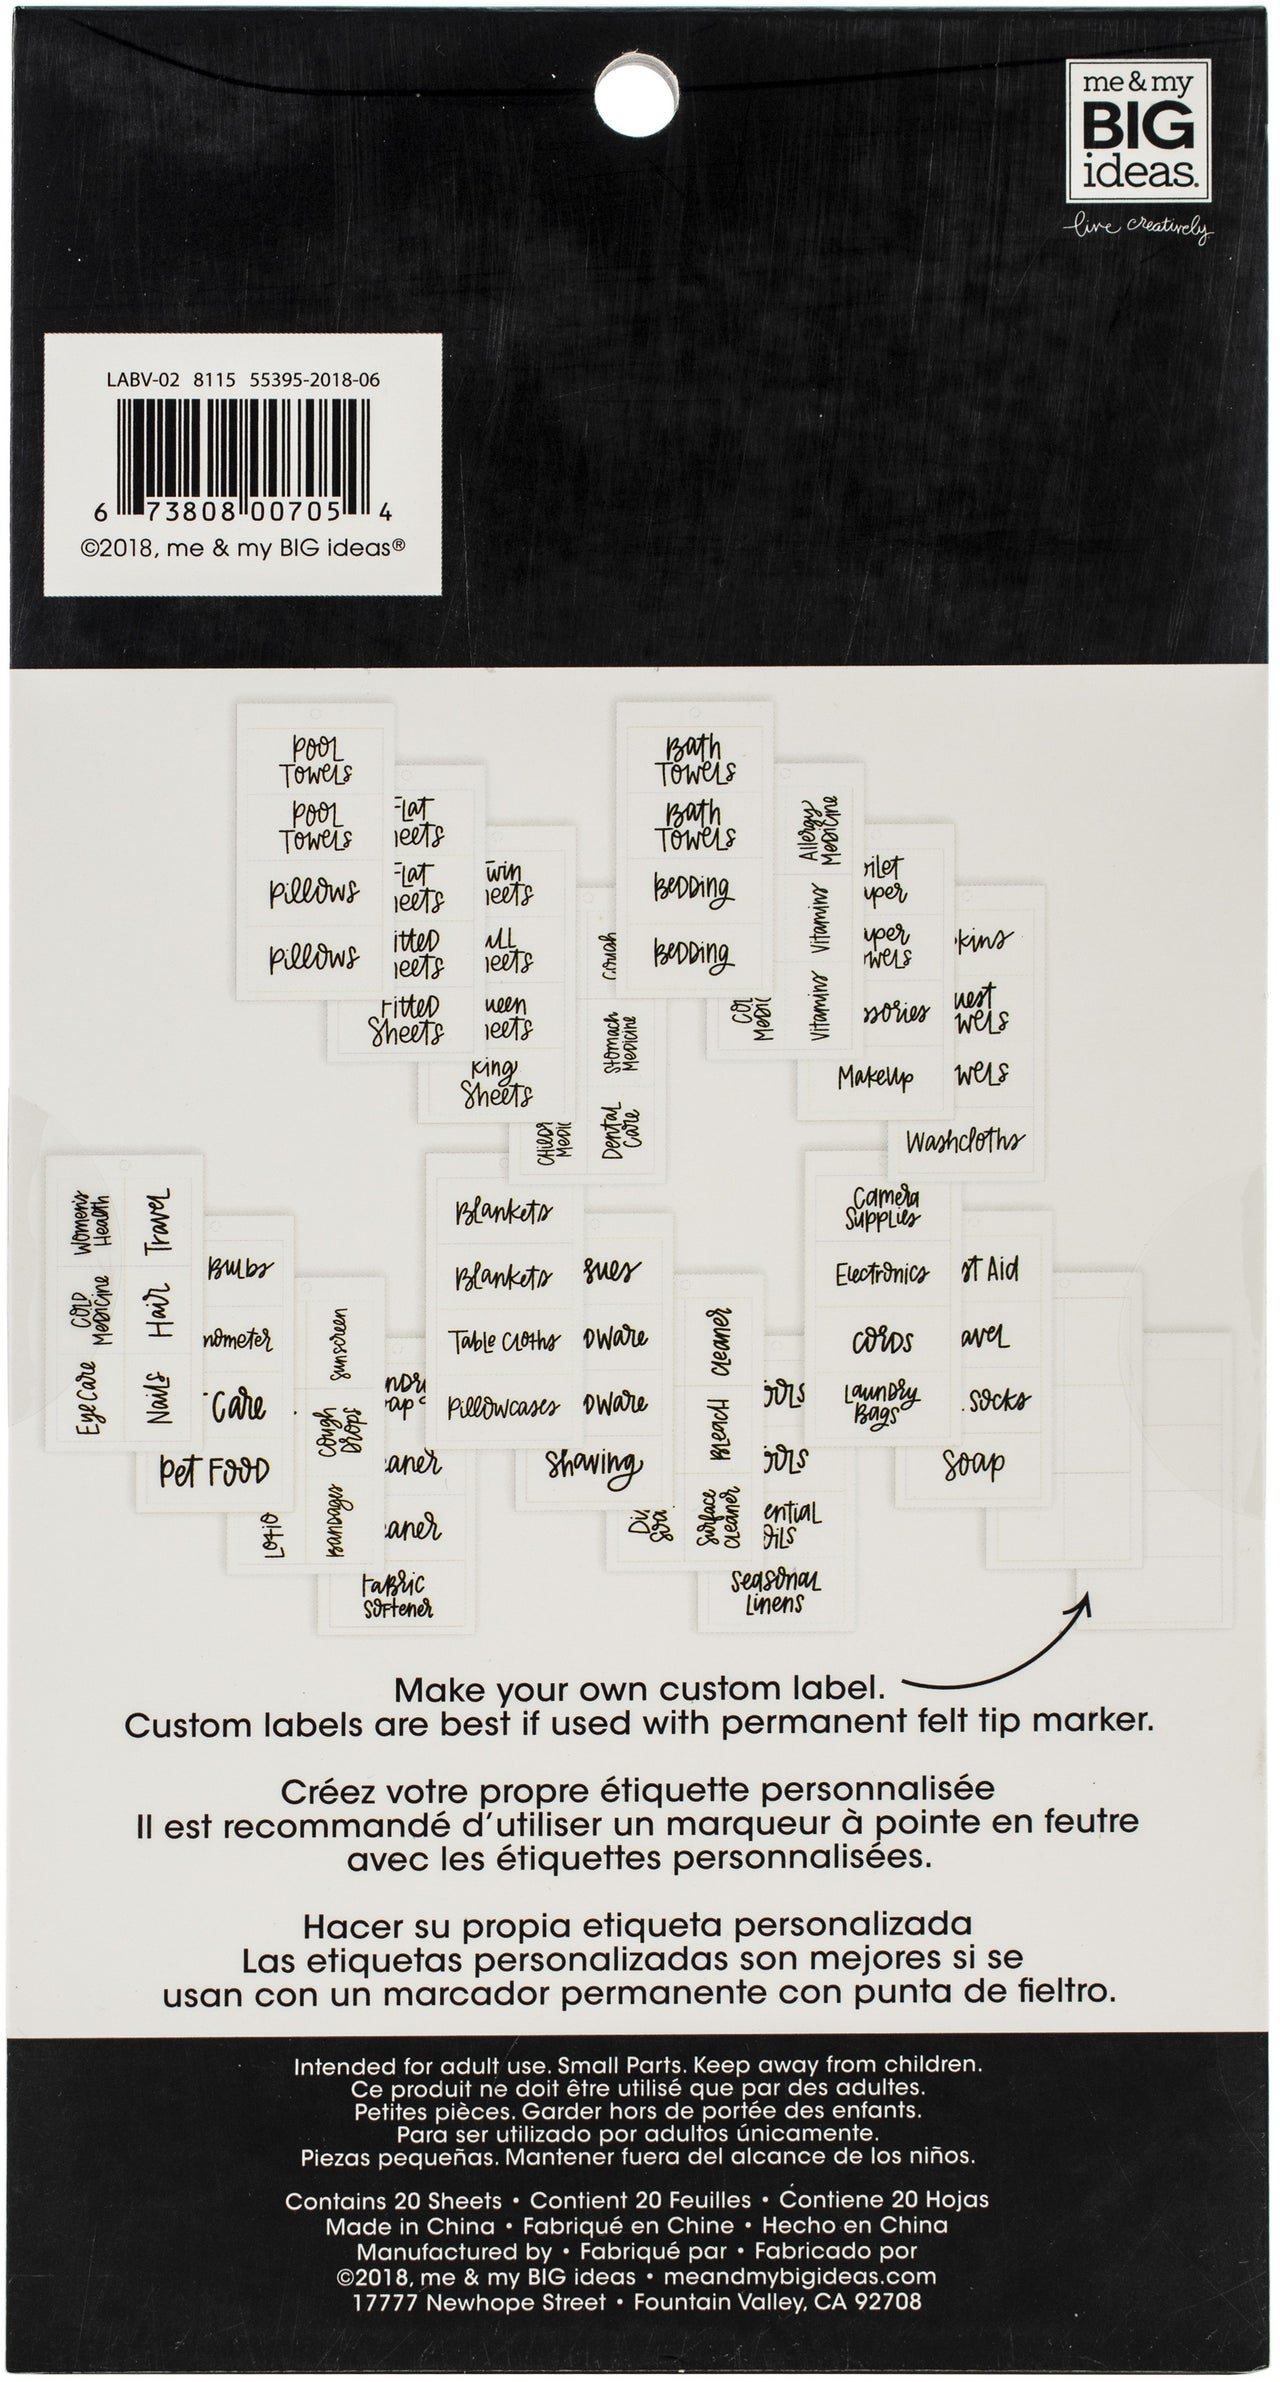 me & my
BIG
ideas.
live creatively
LABV-02 8115 55395-2018-06
6 73808 00705 4
©2018, me & my BIG ideas®
Pool
Towels
Pool
Towels
Pillows
Pillows
Flat
Flat
Fitted
Sheets
King
Sheets
Stomach
Medicine
Dental
Care
Bath
Towels
Bath
Towels
Bedding
Bedding
Allergy
Medicine
Vitamins
Vitamins
Makeup
Washcloths
Women's
Health
Travel
Cold
Medicine
Hair
Eye Care
Nails
Bulbs
Care
Pet Food
Sunscreen
Cough
Drops
Bandages
Fabric
Softener
Blankets
Blankets
Table Cloths
Pillowcases
Shaving
Cleaner
Bleach
Surface
Cleaner
Seasonal
Linens
Camera
Supplies
Electronics
Cords
Laundry
Bags
Aid
Socks
Soap
Make your own custom label.
Custom labels are best if used with permanent felt tip marker.
Créez votre propre étiquette personnalisée
Il est recommandé d'utiliser un marqueur à pointe en feutre
avec les étiquettes personnalisées.
Hacer su propia etiqueta personalizada
Las etiquetas personalizadas son mejores si se
usan con un marcador permanente con punta de fieltro.
Intended for adult use. Small Parts. Keep away from children.
Ce produit ne doit être utilisé que par des adultes.
Petites pièces. Garder hors de portée des enfants.
Para ser utilizado por adultos únicamente.
Piezas pequeñas. Mantener fuera del alcance de los niños.
Contains 20 Sheets • Contient 20 Feuilles • Contiene 20 Hojas
Made in China • Fabriqué en Chine • Hecho en China
Manufactured by • Fabriqué par • Fabricado por
©2018, me & my BIG ideas • meandmybigideas.com
17777 Newhope Street • Fountain Valley, CA 92708